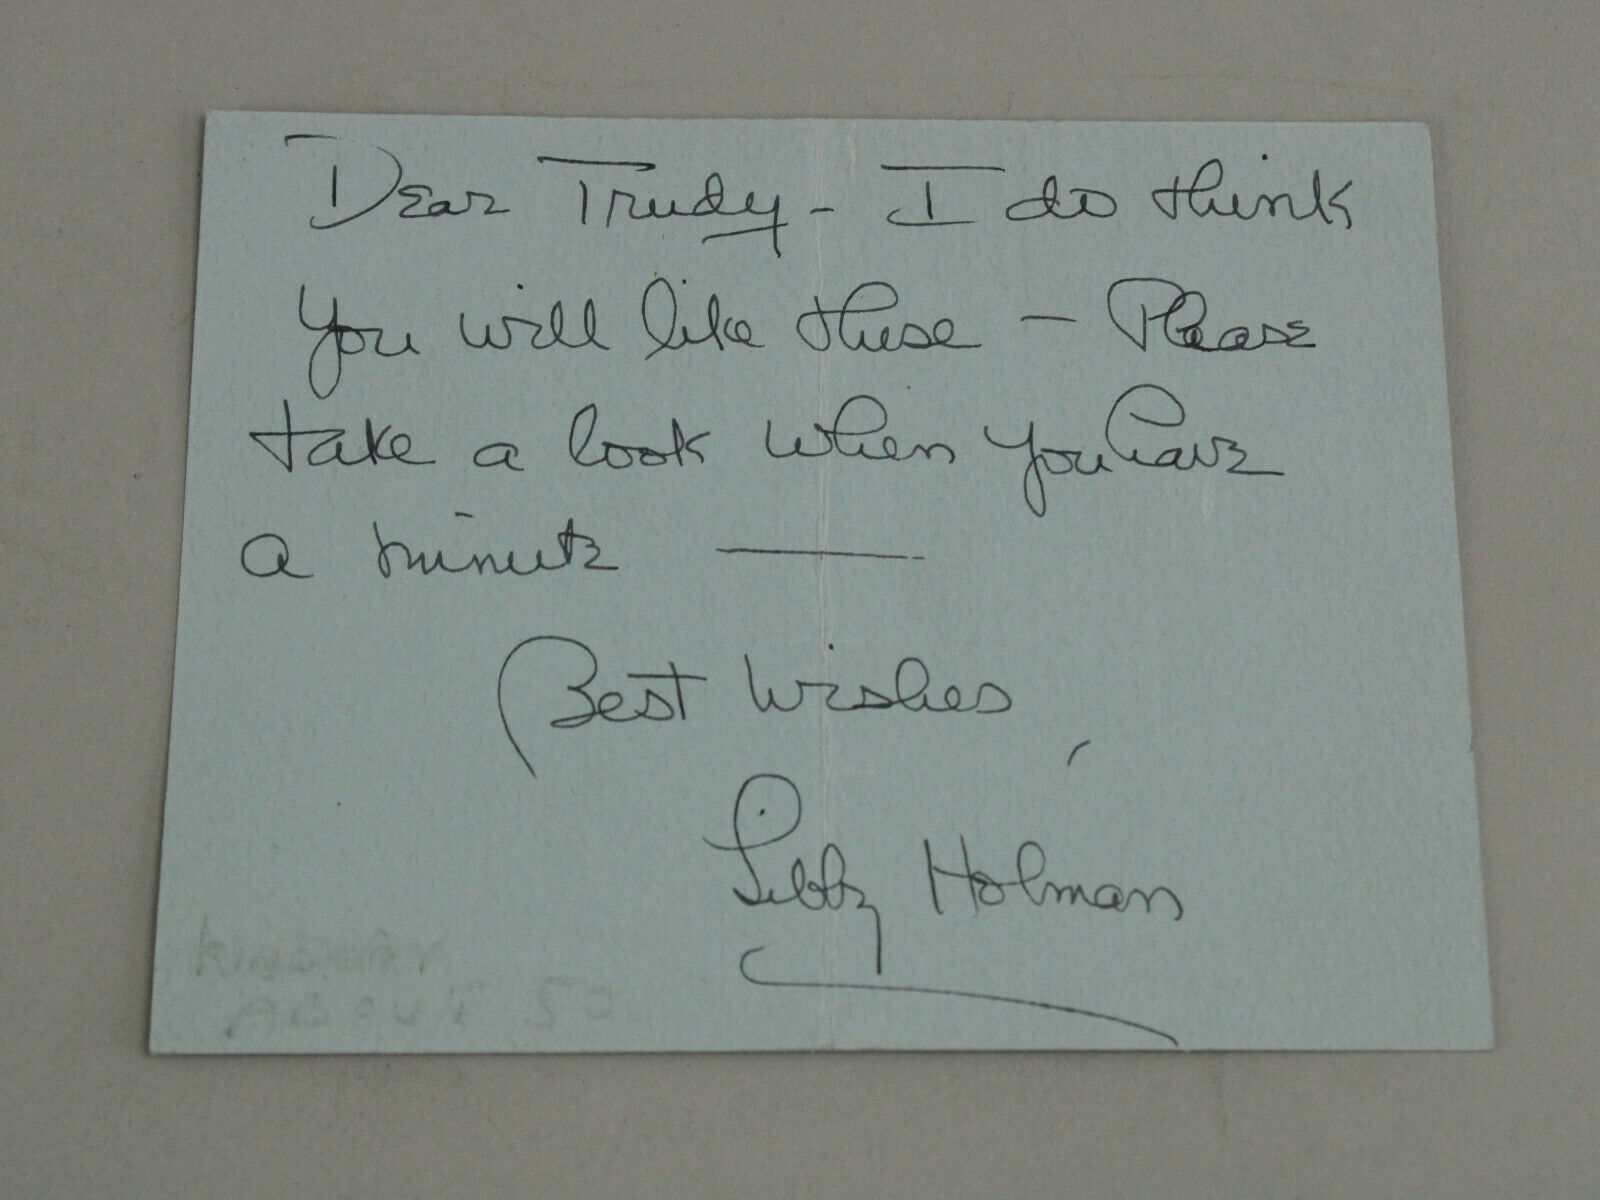 Dear Trudy - I do think
you will like these - Please
take a look when you have
a minute —
Best Wishes,
Libby Holman
ABOUT 50